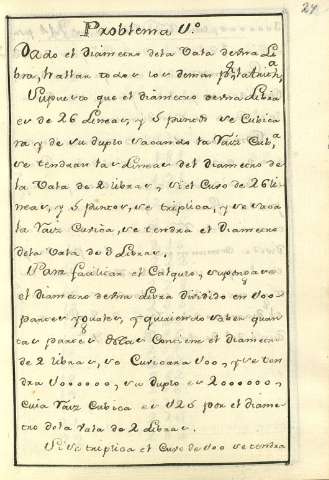 24
Problema V.º
Dado el diametro dela Vala de Una Li
bra, hallar todos los demas
Supuesto que el diametro de Una Libra
es de 26 Lineas, y 5 puntos se Cubica
ra y de su duplo sacando la Raiz Cub.ª
se tendran las Lineas del diametro de
la Vala de 2 libras, si el Cuvo de 26 li
neas, y 5 puntos, se triplica, y se saca
la Raiz Cuvica, se tendra el diametro
dela Vala de 3 Libras.
Para facilitar el Calculo, supongase
el diametro de Una Libra dividido en 100
partes yguales, y queriendo saber quan
tas partes destas Contiene el diametro
de 2 libras, se Cuvicara 100, y se ten
dra 1000000, su duplo es 2000000,
cuia Raiz Cubica es 125 por el diame
tro dela Vala de 2 Libras.
Si se triplica el Cuvo de 100 se tendra